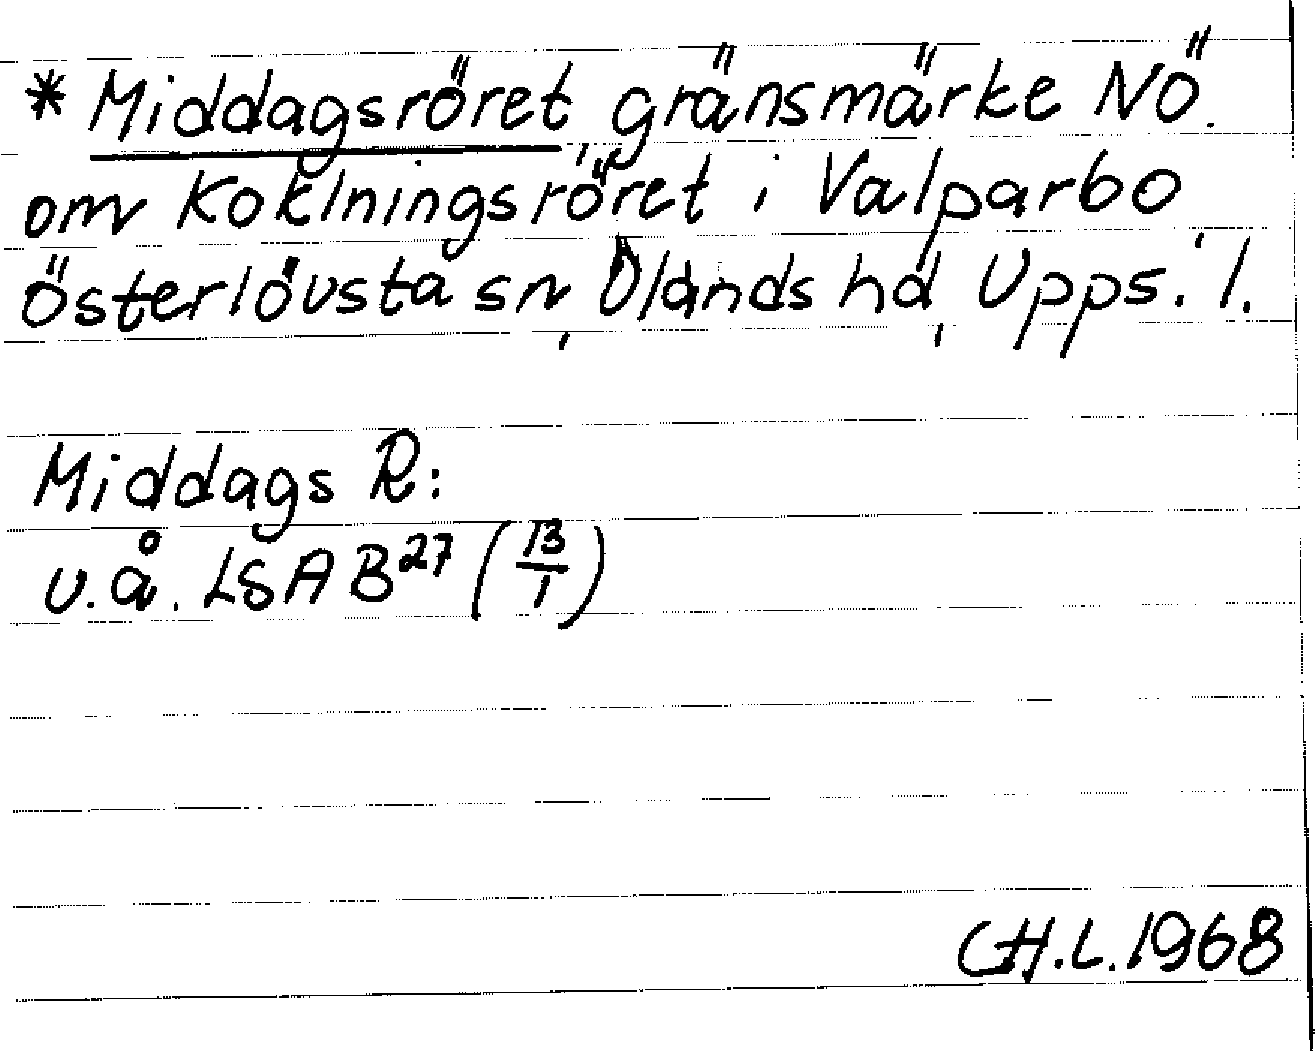 * Middagsröret, gränsmärke NÖ.
om Koklningsröret i Valparbo
Österlövsta sn, Olands hd, Upps. l.
Middags R:
u.å. LSA B27 (13/1)
CH.L. 1968